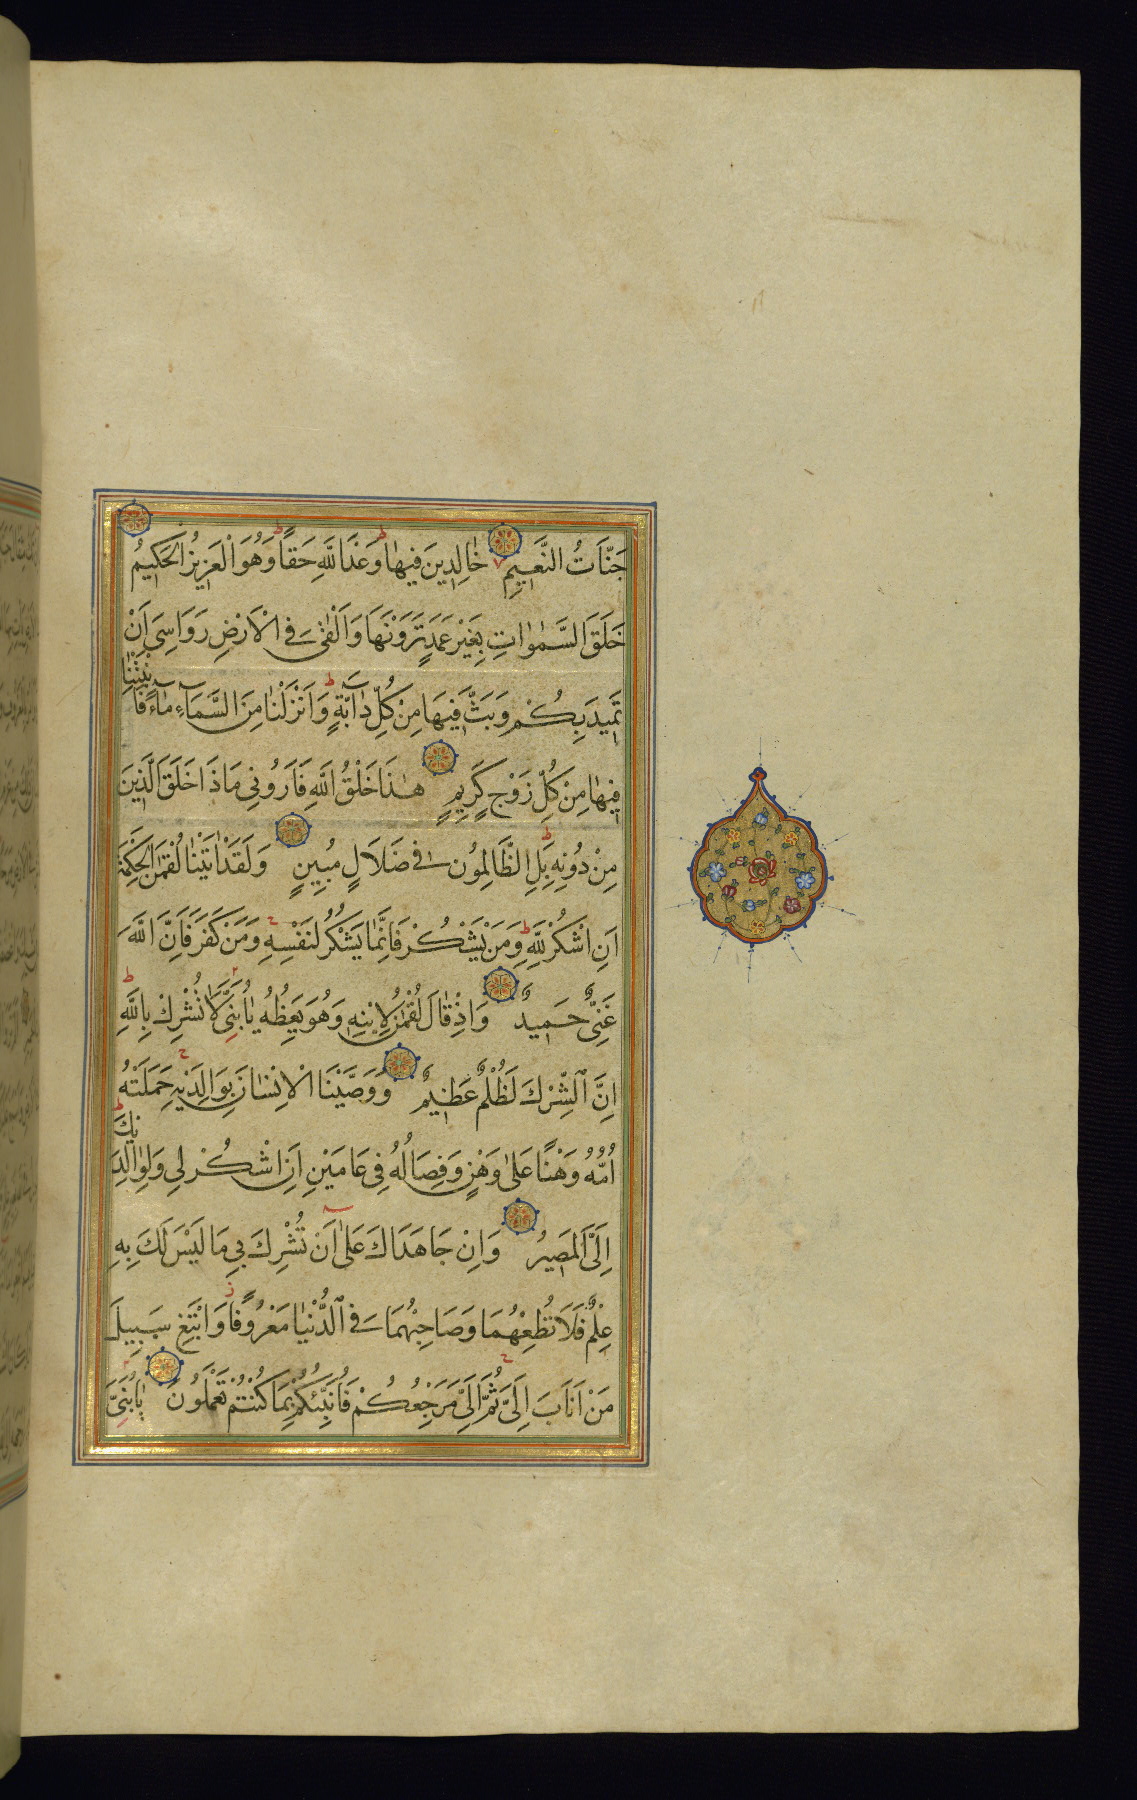 جَنَّاتُ النَّعِيمِ خَالِدِينَ فِيهَا وَعْدَ اللَّهِ حَقًّا وَهُوَ الْعَزِيزُ الْحَكِيمُ
خَلَقَ السَّمٰوَاتِ بِغَيْرِ عَمَدٍ تَرَوْنَهَا وَاَلْقٰى فِي الْاَرْضِ رَوَاسِيَ اَنْ
تَمِيدَ بِكُمْ وَبَثَّ فِيهَا مِنْ كُلِّ دَابَّةٍ وَاَنْزَلْنَا مِنَ السَّمَاءِ مَاءً فَاَنْبَتْنَا
فِيهَا مِنْ كُلِّ زَوْجٍ كَرِيمٍ هٰذَا خَلْقُ اللَّهِ فَاَرُونِي مَاذَا خَلَقَ الَّذِينَ
مِنْ دُونِهِ بَلِ الظَّالِمُونَ فِي ضَلَالٍ مُبِينٍ وَلَقَدْ اٰتَيْنَا لُقْمٰنَ الْحِكْمَةَ
اَنِ اشْكُرْ لِلَّهِ وَمَنْ يَشْكُرْ فَاِنَّمَا يَشْكُرُ لِنَفْسِهِ وَمَنْ كَفَرَ فَاِنَّ اللَّهَ
غَنِيٌّ حَمِيدٌ وَاِذْ قَالَ لُقْمٰنُ لِابْنِهِ وَهُوَ يَعِظُهُ يَا بُنَيَّ لَا تُشْرِكْ بِاللَّهِ
اِنَّ الشِّرْكَ لَظُلْمٌ عَظِيمٌ وَوَصَّيْنَا الْاِنْسَانَ بِوَالِدَيْهِ حَمَلَتْهُ
اُمُّهُ وَهْنًا عَلٰى وَهْنٍ وَفِصَالُهُ فِي عَامَيْنِ اَنِ اشْكُرْ لِي وَلِوَالِدَيْكَ
اِلَيَّ الْمَصِيرُ وَاِنْ جَاهَدَاكَ عَلٰى اَنْ تُشْرِكَ بِي مَا لَيْسَ لَكَ بِهِ
عِلْمٌ فَلَا تُطِعْهُمَا وَصَاحِبْهُمَا فِي الدُّنْيَا مَعْرُوفًا وَاتَّبِعْ سَبِيلَ
مَنْ اَنَابَ اِلَيَّ ثُمَّ اِلَيَّ مَرْجِعُكُمْ فَاُنَبِّئُكُمْ بِمَا كُنْتُمْ تَعْمَلُونَ يَا بُنَيَّ